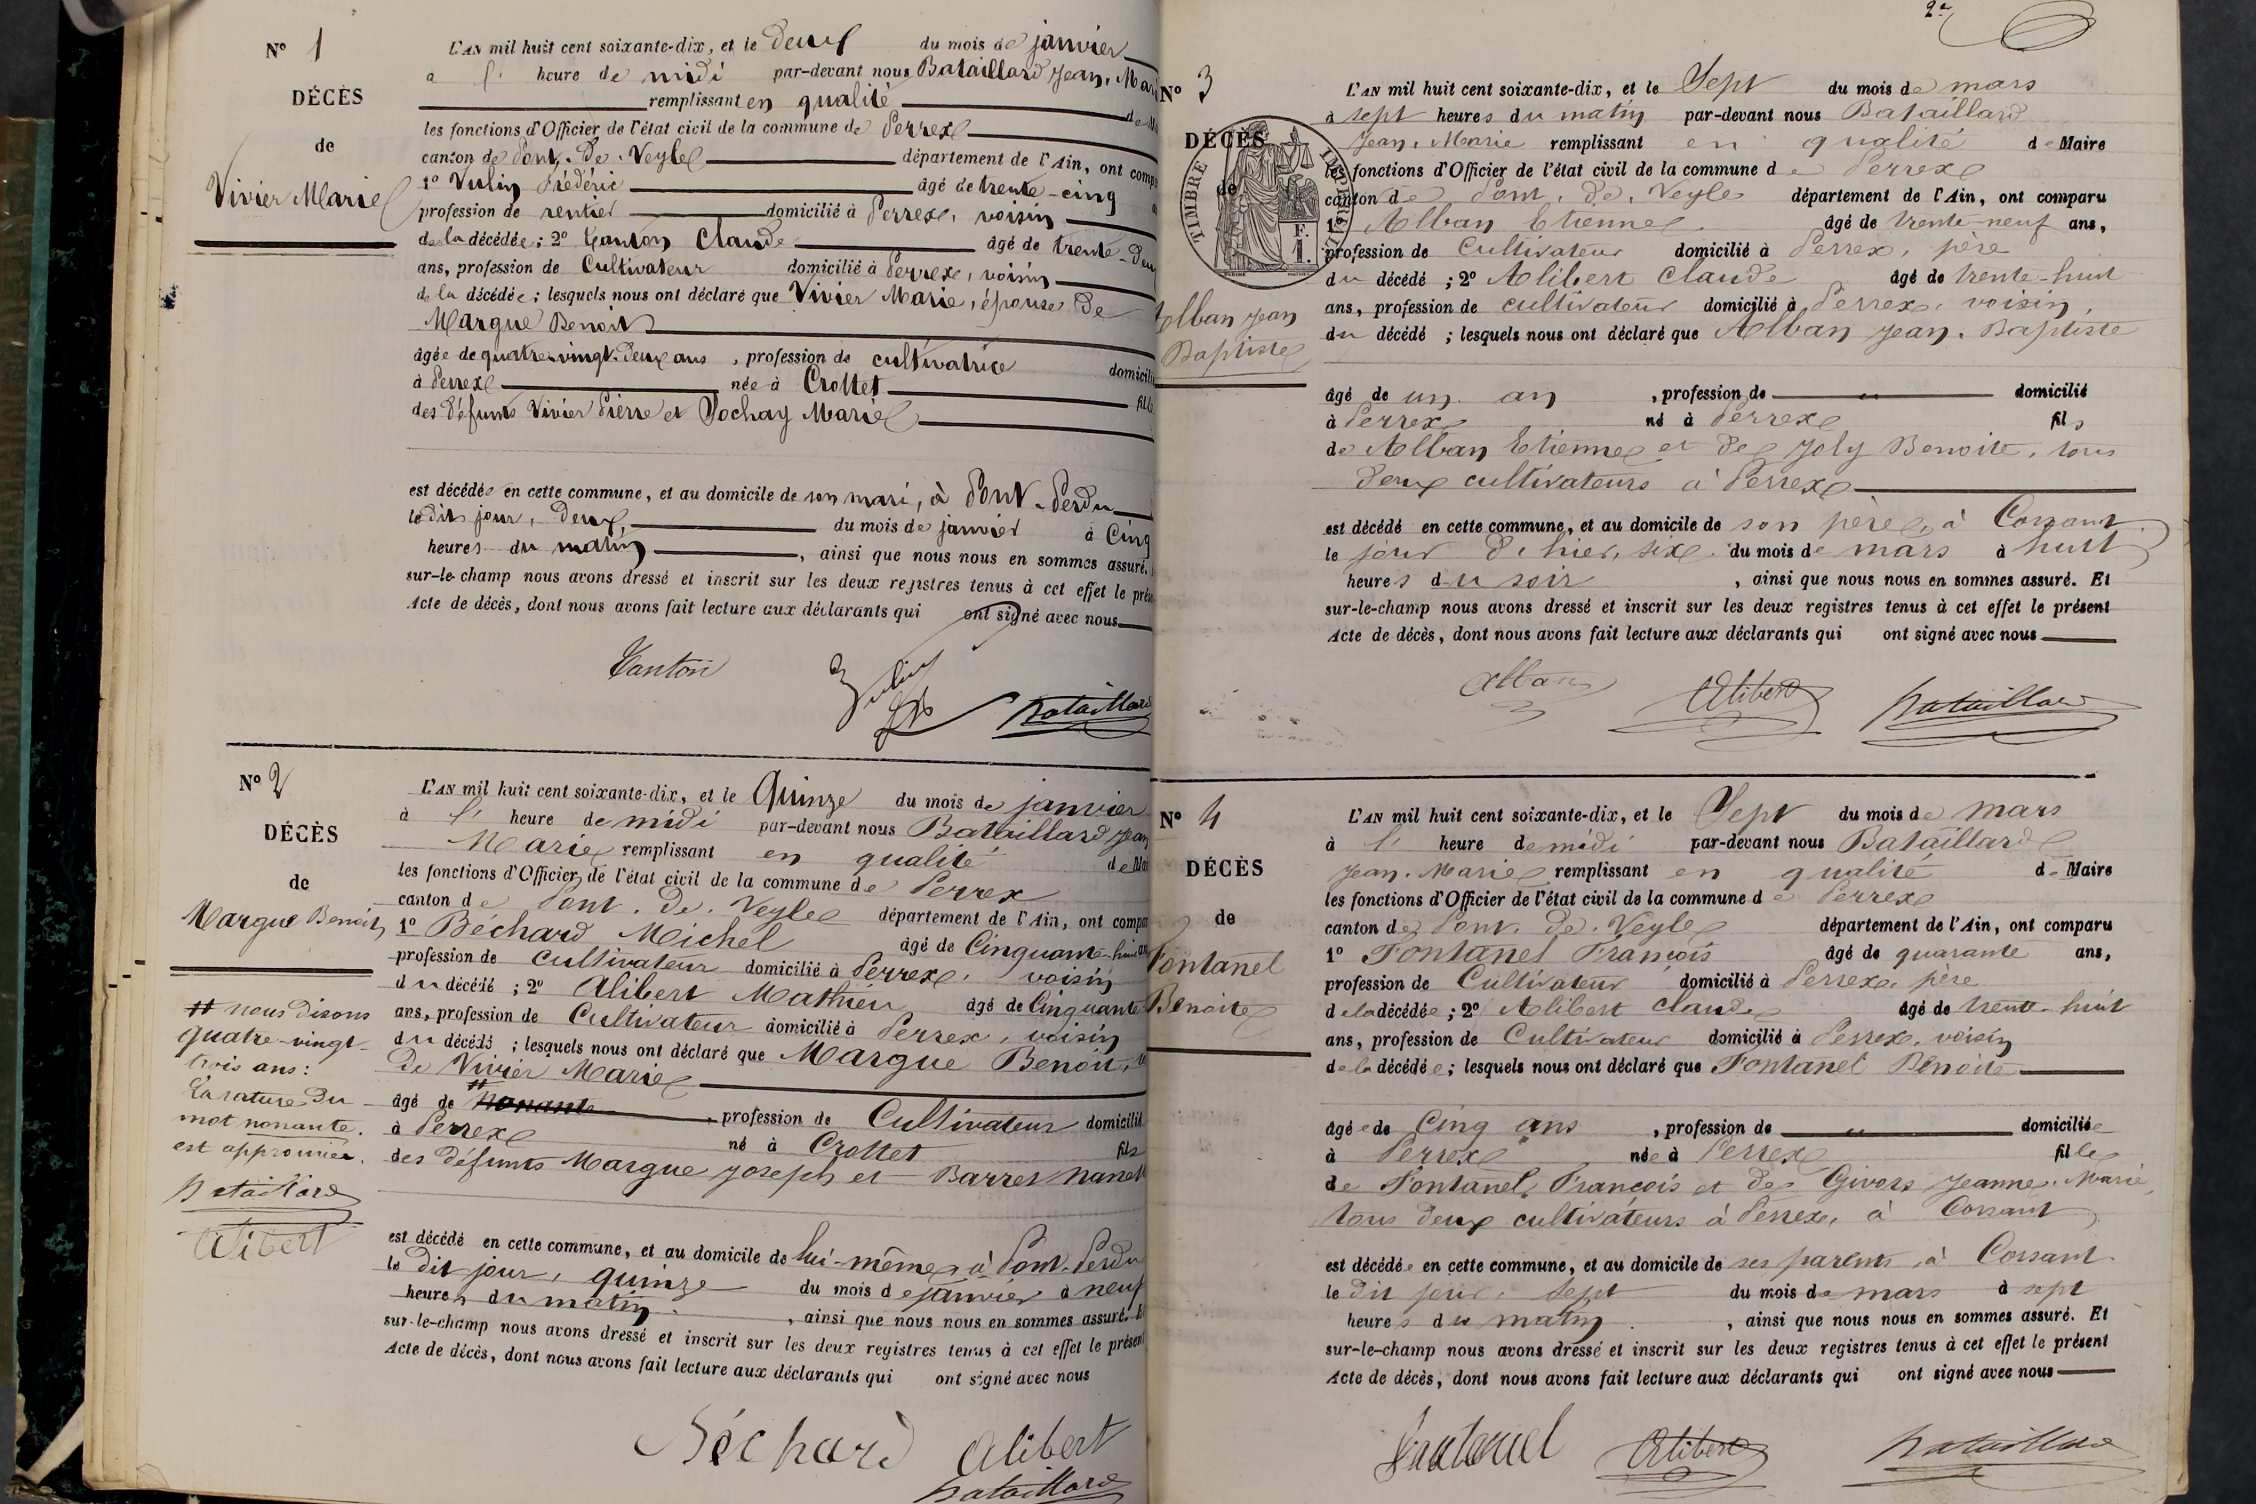 Nº 1
DÉCÈS
de
Vivier Marie
L'AN mil huit cent soixante-dix, et le deux du mois de janvier
à l' heure de midi par-devant nous Bataillard Jean, Mari
remplissant en qualité de M
les fonctions d'Officier de l'état civil de la commune de Perrex
canton de Pont. de. Veyle département de l'Ain, ont comp
1º Vulin Frédéric âgé de trente-cinq
profession de rentier domicilié à Perrex, voisin
de la décédée ; 2º Tanton Claude âgé de trente-deux
ans, profession de Cultivateur domicilié à Perrex, voisin
de la décédée ; lesquels nous ont déclaré que Vivier Marie, épouse de
Margue Benoit
âgée de quatre-vingt-deux ans, profession de cultivatrice domicili
à Perrex née à Crottet fille
des défunts Vivier Pierre et Pochay Marie
est décédée en cette commune, et au domicile de son mari, à Pont-Perdu
le dit jour, deux, du mois de janvier à Cinq
heures du matin, ainsi que nous nous en sommes assuré.
sur-le-champ nous avons dressé et inscrit sur les deux registres tenus à cet effet le prése
Acte de décès, dont nous avons fait lecture aux déclarants qui ont signé avec nous
Tanton Vulin Bataillard
Nº 2
DÉCÈS
de
Margue Benoit
L'AN mil huit cent soixante-dix, et le Quinze du mois de janvier
à l' heure de midi par-devant nous Bataillard Jean
Marie remplissant en qualité de Mai
les fonctions d'Officier de l'état civil de la commune de Perrex
canton de Pont. de. Veyle département de l'Ain, ont compa
1º Béchard Michel âgé de Cinquante-huit an
profession de cultivateur domicilié à Perrex, voisin
du décédé ; 2º Alibert Mathieu âgé de Cinquante
ans, profession de Cultivateur domicilié à Perrex, voisin
du décédé ; lesquels nous ont déclaré que Margue Benoit,
de Vivier Marie
âgé de nonante, profession de Cultivateur domicilié
à Perrex né à Crottet fils
des défunts Margue Joseph et Barret Nanet
est décédé en cette commune, et au domicile de lui-même, à Pont-Perdu
le dit jour, quinze du mois de janvier à neuf
heures du matin, ainsi que nous nous en sommes assuré. Et
sur-le-champ nous avons dressé et inscrit sur les deux registres tenus à cet effet le présent
Acte de décès, dont nous avons fait lecture aux déclarants qui ont signé avec nous
# nous disons
quatre-vingt-
trois ans :
La rature du
mot nonante
est approuvée.
Bataillard
Alibert
Béchard Alibert
Bataillard
2e
Nº 3
DÉCÈS
de
Alban Jean
Baptiste
TIMBRE IMPERIAL
1 F.
L'AN mil huit cent soixante-dix, et le Sept du mois de mars
à sept heures du matin par-devant nous Bataillard
Jean, Marie remplissant en qualité de Maire
les fonctions d'Officier de l'état civil de la commune de Perrex
canton de Pont. de. Veyle département de l'Ain, ont comparu
1º Alban Etienne âgé de trente-neuf ans,
profession de Cultivateur domicilié à Perrex, père
du décédé ; 2º Alibert Claude âgé de trente-huit
ans, profession de cultivateur domicilié à Perrex, voisin
du décédé ; lesquels nous ont déclaré que Alban Jean. Baptiste
âgé de un an, profession de " domicilié
à Perrex né à Perrex fils
de Alban Etienne et de Joly Benoite, tous
deux cultivateurs à Perrex
est décédé en cette commune, et au domicile de son père, à Corsant
le jour d'hier, six du mois de mars à huit
heures du soir, ainsi que nous nous en sommes assuré. Et
sur-le-champ nous avons dressé et inscrit sur les deux registres tenus à cet effet le présent
Acte de décès, dont nous avons fait lecture aux déclarants qui ont signé avec nous
Alban Alibert Bataillard
Nº 4
DÉCÈS
de
Fontanel
Benoite
L'AN mil huit cent soixante-dix, et le Sept du mois de mars
à l' heure de midi par-devant nous Bataillard
Jean. Marie remplissant en qualité de Maire
les fonctions d'Officier de l'état civil de la commune de Perrex
canton de Pont. de. Veyle département de l'Ain, ont comparu
1º Fontanel François âgé de quarante ans,
profession de Cultivateur domicilié à Perrex, père
de la décédée ; 2º Alibert Claude âgé de trente-huit
ans, profession de Cultivateur domicilié à Perrex, voisin
de la décédée ; lesquels nous ont déclaré que Fontanel Benoite
âgée de Cinq ans, profession de " domiciliée
à Perrex née à Perrex fille
de Fontanel François et de Givors Jeanne. Marie,
tous deux cultivateurs à Perrex, à Corsant
est décédée en cette commune, et au domicile de ses parents, à Corsant
le dit jour, sept du mois de mars à sept
heures du matin, ainsi que nous nous en sommes assuré. Et
sur-le-champ nous avons dressé et inscrit sur les deux registres tenus à cet effet le présent
Acte de décès, dont nous avons fait lecture aux déclarants qui ont signé avec nous
Fontanel Alibert Bataillard